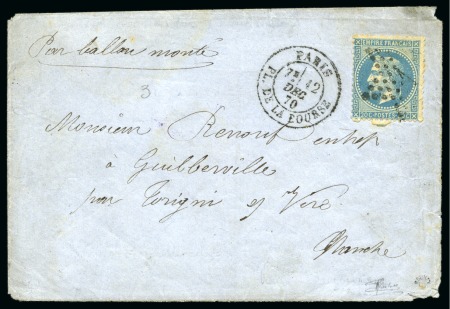 Par ballon monté
PARIS
7E/ 12
DEC
70
PL. DE LA BOURSE
EMPIRE FRANÇAIS
20 C POSTES 20 C
3
Monsieur Renouf entrep
à Guilberville
par Torigni s/ Vire
Manche